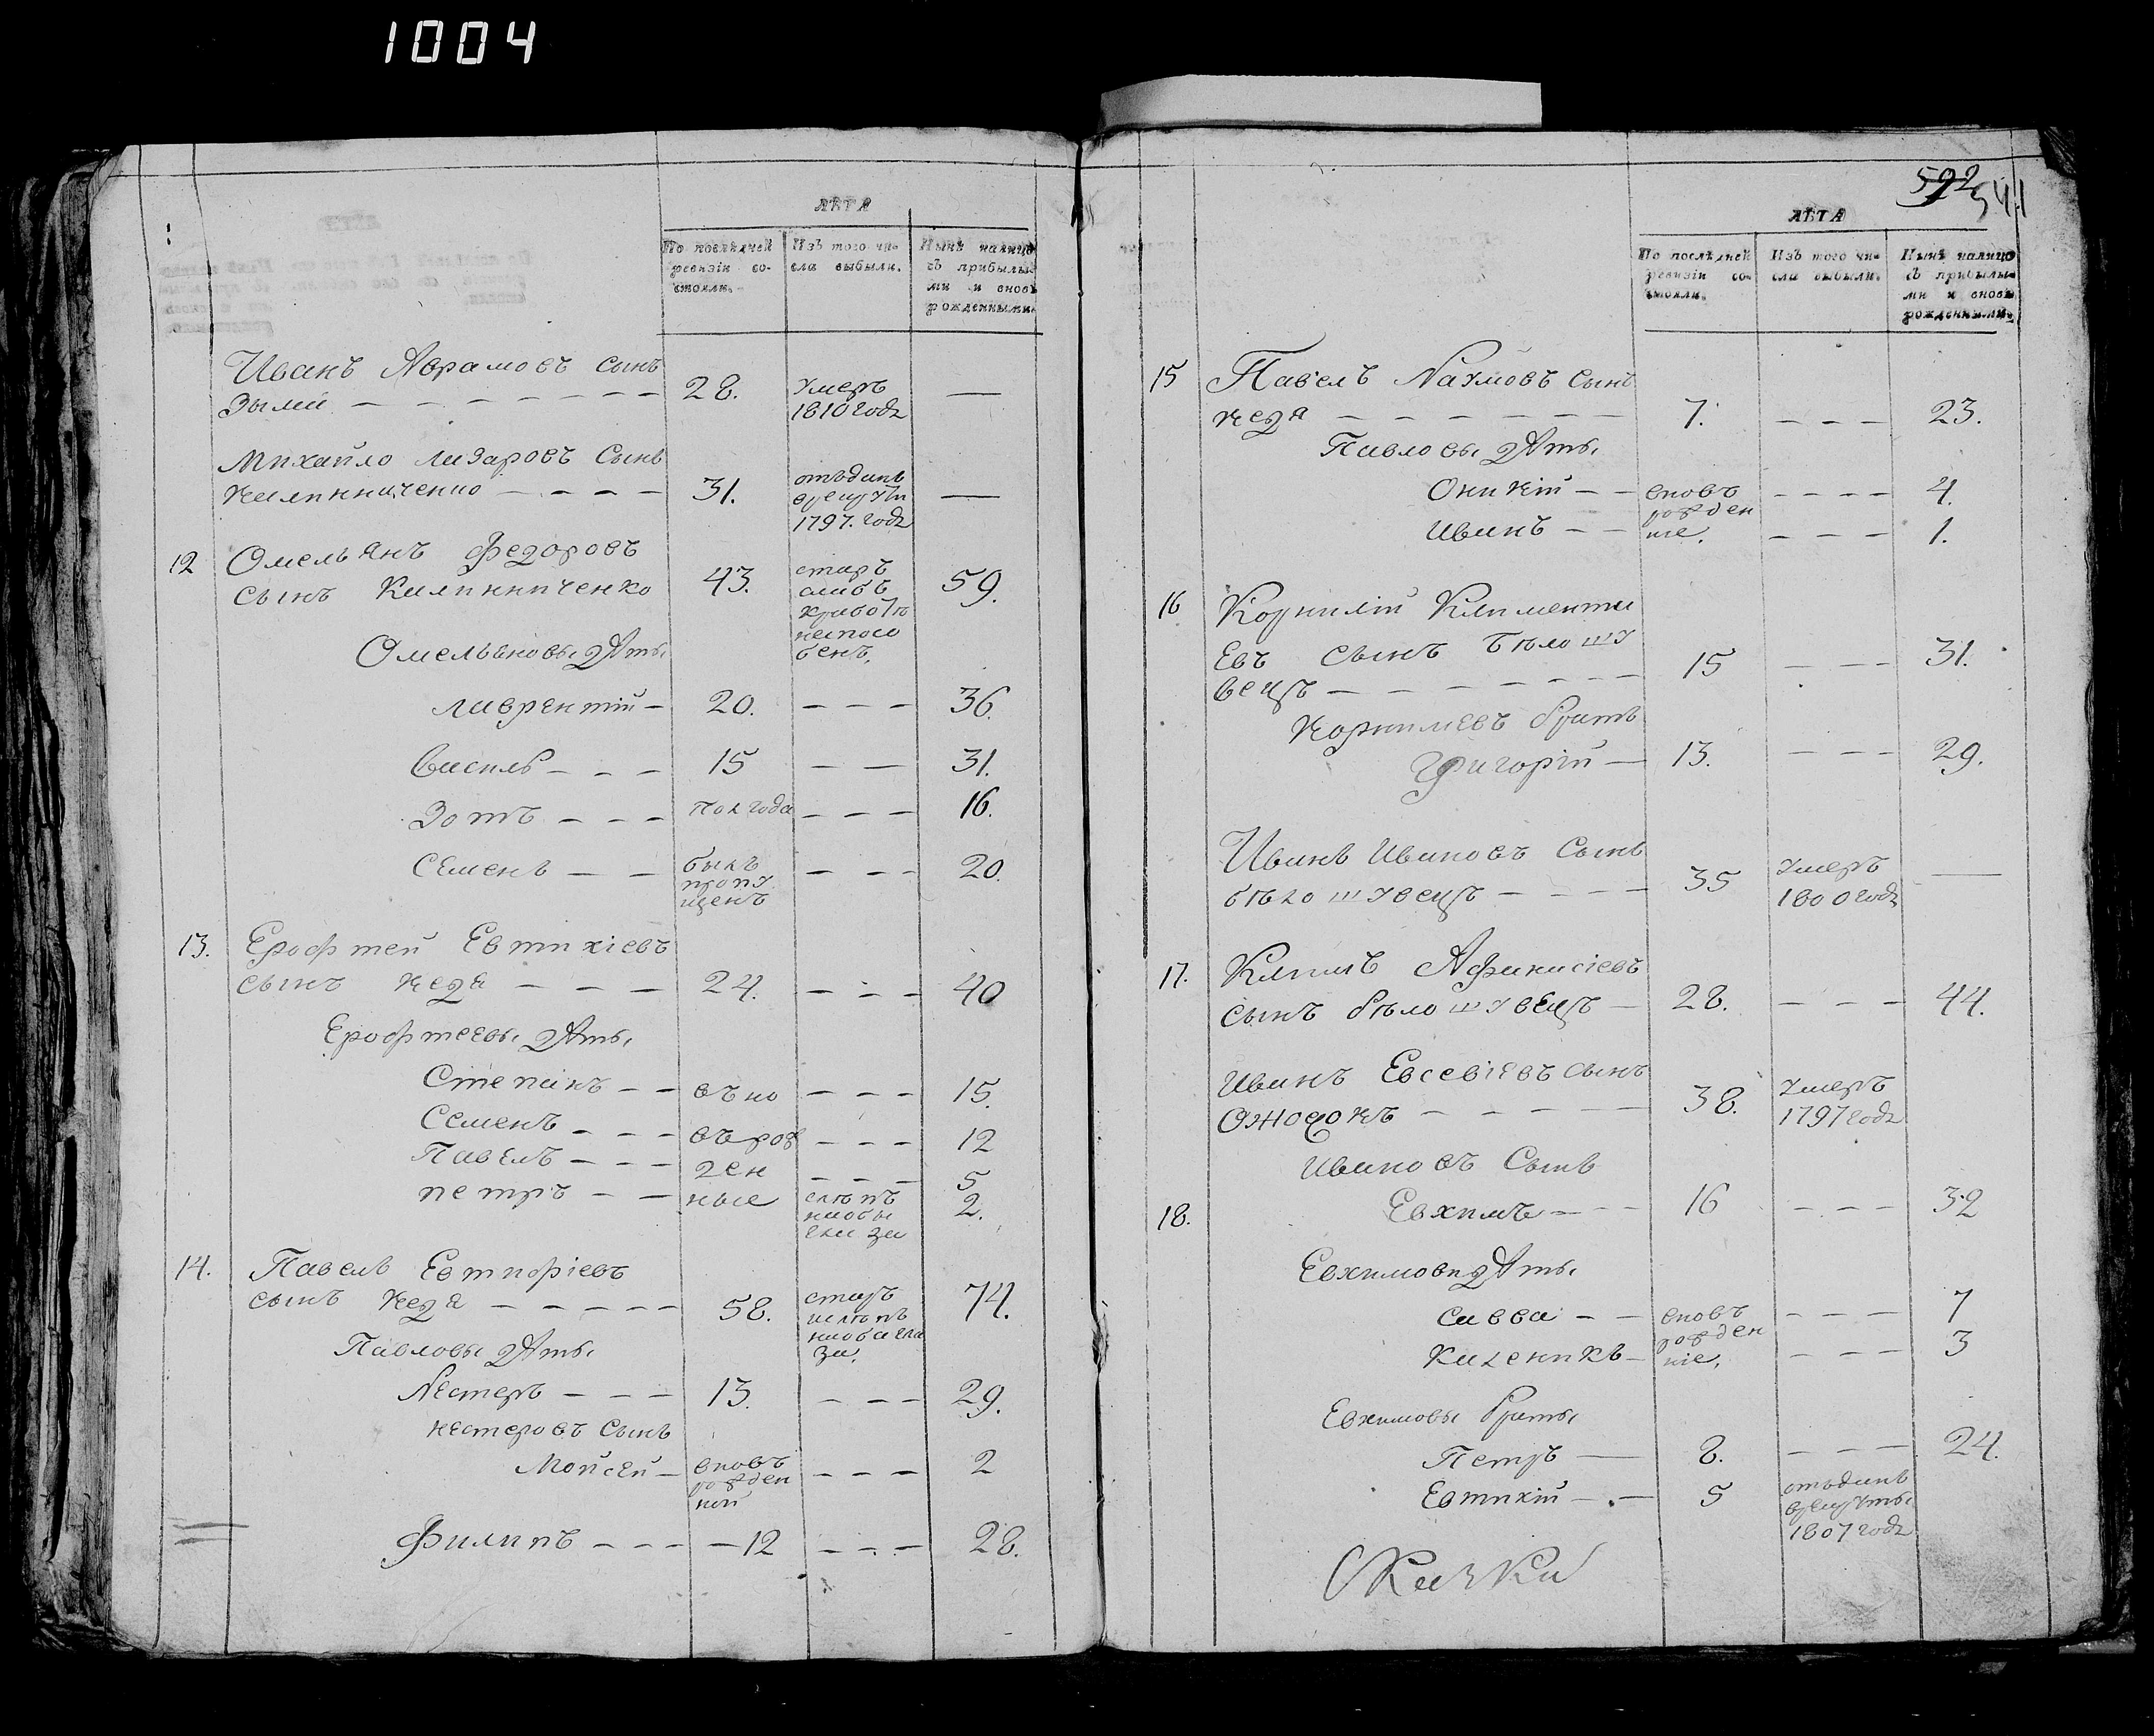 1004
ЛѢТА
По послѣдней ревизіи состояли.
Изъ того числа выбыли.
Нынѣ налицо съ прибылыми и вновь рожденными.
Иванъ Аврамовъ сынъ
Зыми — 28. умеръ 1810 года —
Михайло Лазаровъ Сынъ
Калинниченко — 31. отъданъ врекруты 1797. года —
12 Омельянъ Федоровъ
сынъ Калинниченко 43. старъ слабъ кработѣ неспособенъ, 59.
Омельяновы дѣты
Лаврентій — 20. — — — 36.
Василь — — — 15 — — 31.
Зотъ — — — полгода — — — 16.
Семенъ — — былъ пропущенъ — — — 20.
13. Ерофтей Евтихіевъ
сынъ Кедя — — — 24. — — — 40
Ерофтеевы дѣты
Степанъ — — въно — — — 15.
Семенъ — — — върож — — — 12
Павелъ — — — ден — — — 5
петръ — — ные слѣпъ наобы глаза 2.
14. Павелъ Евтифіевъ
сынъ Кедя — — — — — 58. старъ ислѣпъ наоба глаза. 74.
Павловы дѣты
Нестеръ — — — 13. — — — 29.
нестеровъ Сынъ
Мойсей — вновъ рожден ной — — — 2
Филипъ — — — — 12 — — — 28.
592
541
ЛѢТА
По послѣдней ревизіи состояли.
Изъ того числа выбыли.
Нынѣ налицо съ прибылыми и вновь рожденными.
15 Павелъ Наумовъ Сынъ
Кедя — — — — — — 7. — — — 23.
Павловы дѣты
Оникій — — вновъ рожден — — — — 4.
Иванъ — — ніе. — — — 1.
16 Корнилій Клименти
Евъ сынъ Бѣлошу
вецъ — — — — — — — 15 — — — 31.
Корнилиевъ братъ
Григорій — 13. — — — 29.
Иванъ Ивановъ Сынъ
бѣлошувецъ — — — — 35 Умеръ 1800 года —
17. Климъ Афанасіевъ
сынъ бѣлошувецъ — 28. — — — 44.
Иванъ Евсевіевъ сынъ
Ожогокъ — — — — — 38. Умеръ 1797 года
Ивановъ Сынъ
18. Евхимъ — — — 16 — — — 32
Евхимови дѣты
Савва — — вновъ рожден — — — 7
Каленикъ — ніе, — — — 3
Евхимовы браты
Петръ — 8. — — — 24.
Евтихій — . — 5 отъданъ врекруты 1807 года
Скаски